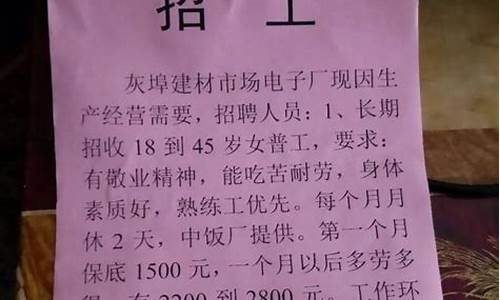 招工
灰埠建材市场电子厂现因生
产经营需要，招聘人员：1、长期
招收 18 到 45 岁女普工，要求：
有敬业精神，能吃苦耐劳，身体
素质好，熟练工优先。每个月月
休 2 天，中饭厂提供。第一个月
保底 1500 元，一个月以后多劳多
得，在 2200 到 2800 元。工作环